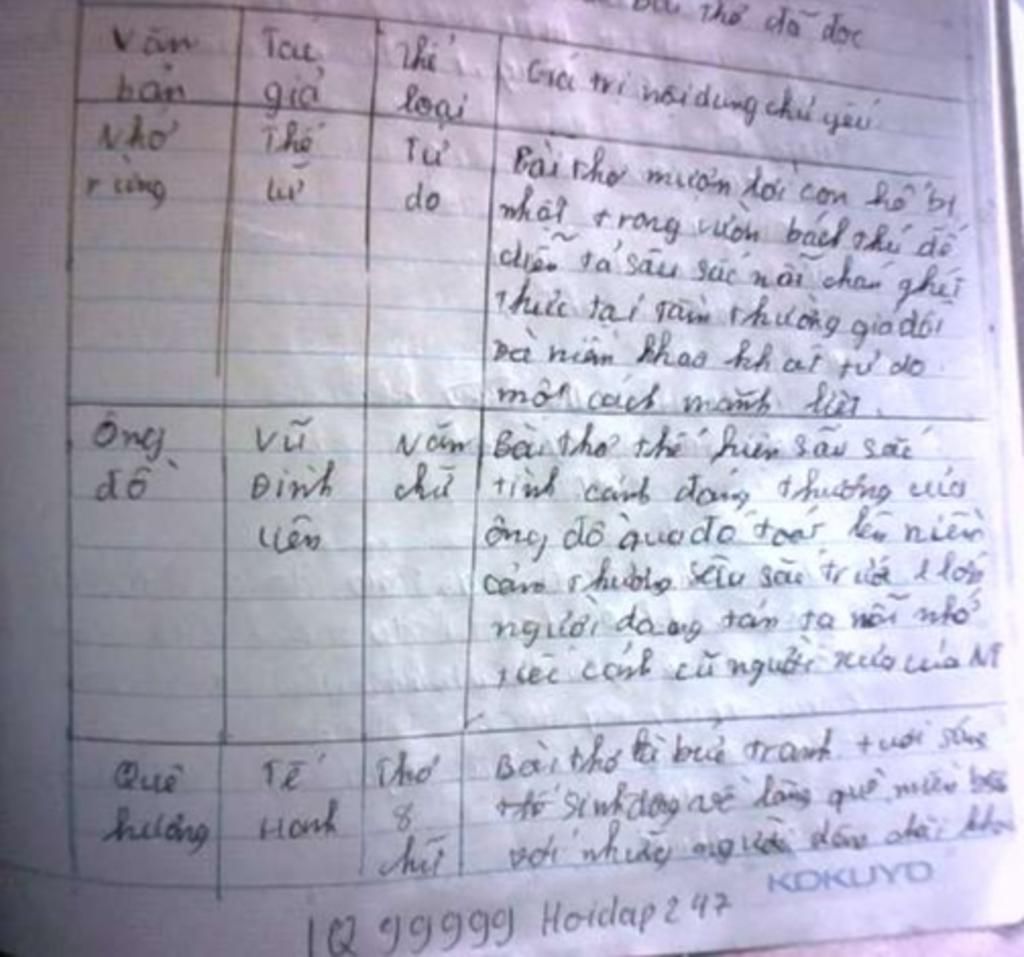 bài thơ đã đọc
Văn bản | Tác giả | Thể loại | Giá trị nội dung chủ yếu
Nhớ rừng | Thế Lữ | Tự do | Bài thơ mượn lời con hổ bị
nhốt trong vườn bách thú để
diễn tả sâu sắc nỗi chán ghét
thực tại tầm thường giả dối
và niềm khao khát tự do
một cách mãnh liệt.
Ông đồ | Vũ Đình Liên | Năm chữ | Bài thơ thể hiện sâu sắc
tình cảnh đáng thương của
ông đồ qua đó toát lên niềm
cảm thương sâu sắc trước lớp
người đang tàn tạ nỗi nhớ
tiếc cảnh cũ người xưa của NT
Quê hương | Tế Hanh | Thơ 8 chữ | Bài thơ là bức tranh tươi sáng
sinh động về làng quê miền biển
với những người dân chài
KOKUYO
IQ 99999 Hoidap247